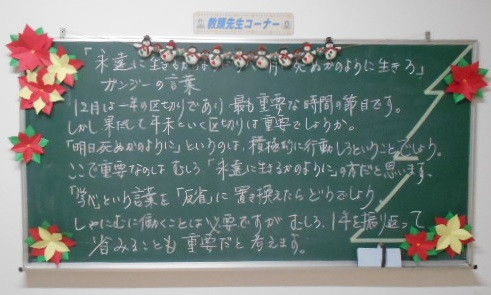 教頭先生コーナー
「永遠に生きるかのように 明日死ぬかのように生きろ」
ガンジーの言葉
12月は一年の区切りであり 最も重要な時間の節目です。
しかし果たして年末という区切りは重要でしょうか。
「明日死ぬかのように」というのは、積極的に行動しろということでしょう。
ここで重要なのは むしろ「永遠に生きるかのように」の方だと思います。
「学ぶ」という言葉を「反省」に置き換えたらどうでしょう。
しゃにむに働くことは必要ですが むしろ、1年を振り返って
省みることも 重要だと考えます。